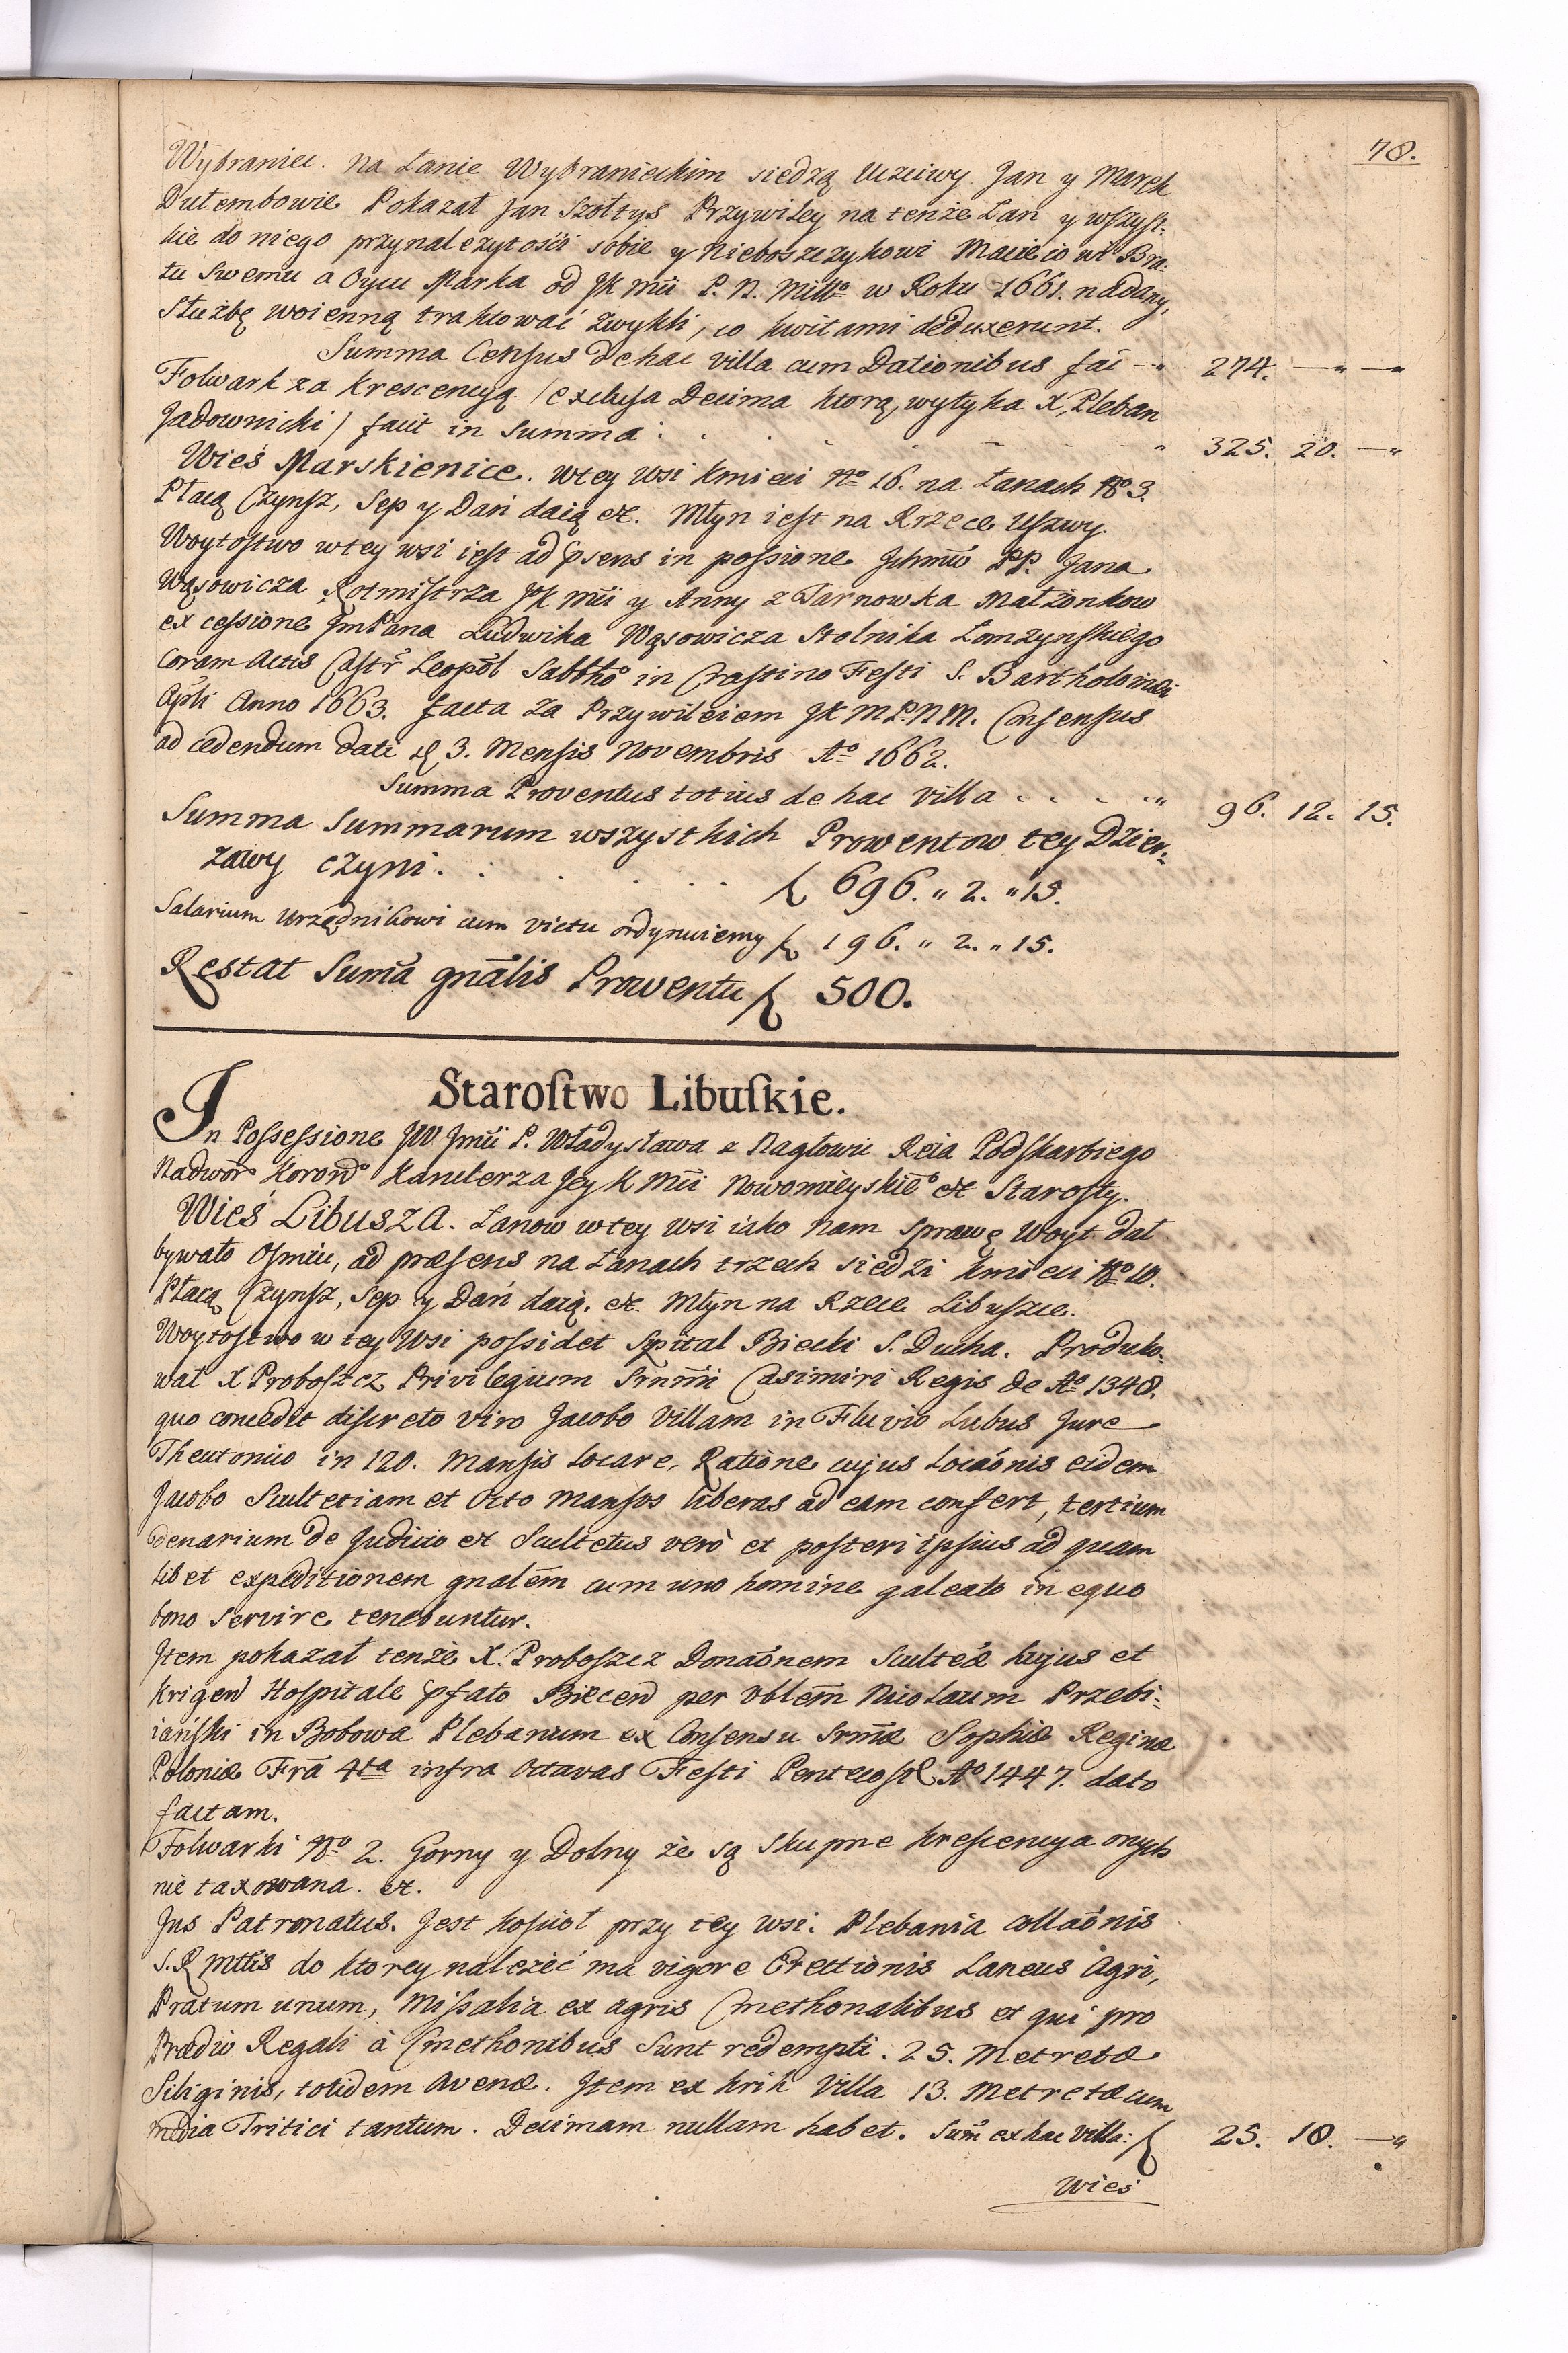 78.
Wybraniec. Na Łanie Wybranieckim siedzą Uczciwy Jan y Marek
Dutembowie Pokazał Jan Szołtys Przywiley na tenże Łan y wszyst:
kie do niego przynalezytości sobie y Nieboszczykowi Macieiowi Bra:
tu Swemu a Oycu Marka od JK Mći P. N. Miłło w Roku 1661. nadany,
Służbę woienną traktować zwykli, co kwitami deduxerunt.
Summa Census de hac villa cum Dationibus faĉ — " 274. — " — "
Folwark za Krescencyą (exclusa Decima ktorą wytyka X. Pleban
Jadownicki) facit in Summa: . . . . . " 325. 20. — "
Wieś Marskienice. w tey Wsi Kmieci No 16. na Łanach No 3.
Płacą Czynsz, Sep y Dań daią &c. Młyn iest na Rzece Uszwy.
Woytostwo w tey wsi iest ad psens in possione Jchmćiow PP. Jana
Wąsowicza Rotmistrza JK Mći y Anny z Tarnowka Małżonkow
ex cessione JmPana Ludwika Wąsowicza Stolnika Łomzynskiego
Coram Actis Castr Leopol Sabbtho in Crastino Festi S. Bartholomæi
Apli Anno 1663. facta za Przywileiem JK M P. N M. Consensus
ad cedendum dati d 3. Mensis Novembris Ao 1662.
Summa Proventus totius de hac villa . . . . " 96. 12. 15.
Summa Summarum wszystkich Prowentow tey Dzier-
zawy czyni . . . . . . . f 696. " 2. " 15.
Salarium Urzędnikowi cum victu ordynuiemy f 196. " 2. " 15.
Restat Suma gnalis Prowentu f 500.
Starostwo Libuskie.
In Possessione JW Jmći P. Władysława z Nagłowic Reia Podskarbiego
Nadwor Korono Kanclerza Jey K Mći Nowomieyskieo &c Starosty.
Wieś Libusza. Łanow w tey wsi iako nam sprawę Woyt dał
bywało Osmiu, ad præsens na Łanach trzech siedzi kmieci No 10.
Płacą Czynsz, Sep y Dań daią. &c. Młyn na Rzece Libuszce.
Woytostwo w tey Wsi possidet Szpital Biecki S. Ducha. Produko-
wał X Proboszcz Privilegium Srnmi Casimiri Regis de Ao 1348.
quo concedit discreto viro Jacobo Villam in Fluvio Lubus Jure
Theutonico in 120. Mansis Locare, Ratione cujus Locaõnis eidem
Jacobo Scultetiam et Octo Mansos liberas ad eam confert, tertium
denarium de Judicio &c Scultetus verò et posteri ipsius ad quam
libet expeditionem gnalem cum uno homine galeato in equo
bono servire tenebuntur.
Item pokazał tenże X. Proboszcz Donaõnem Scultæ hujus et
Krigen Hospitale pfato Biecen per Vblem Nicolaum Przebi-
iański in Bobowa Plebanum ex Consensu Srmæ Sophiæ Reginæ
Poloniæ Fra 4ta infra Octavas Festi Pentecost Ao 1447. dato
factam.
Folwarki No 2. Gorny y Dolny że są Skupne krescencya onych
nie taxowana. &c.
Jus Patronatus. Jest kościoł przy tey wsi. Plebania collaõnis
S. R Mttis do ktorey należeć ma vigore Erectionis Laneus Agri,
Pratum unum, Missalia ex agris Cmethonalibus et qui pro
Prædio Regali à Cmethonibus sunt redempti. 25. Metretæ
Siliginis, totidem Avenæ. Item ex krik Villa 13. Metretæ cum
media Tritici tantum. Decimam nullam habet. Sum ex hac villa: f 25. 18. — "
Wieś